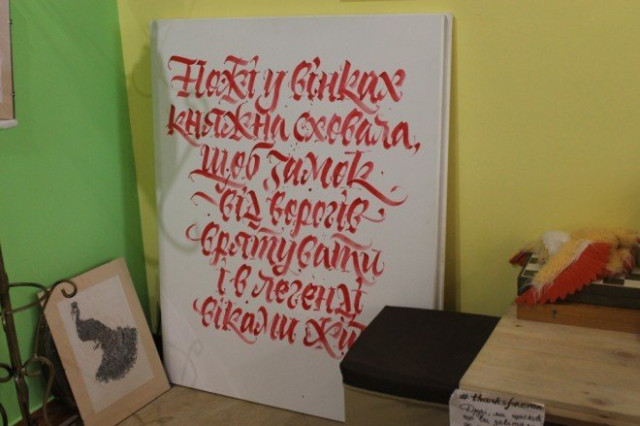 Ножі у вінках
княжна сховала,
щоб замок
від ворогів
врятувати
і в легенді
віками
#thanksfor